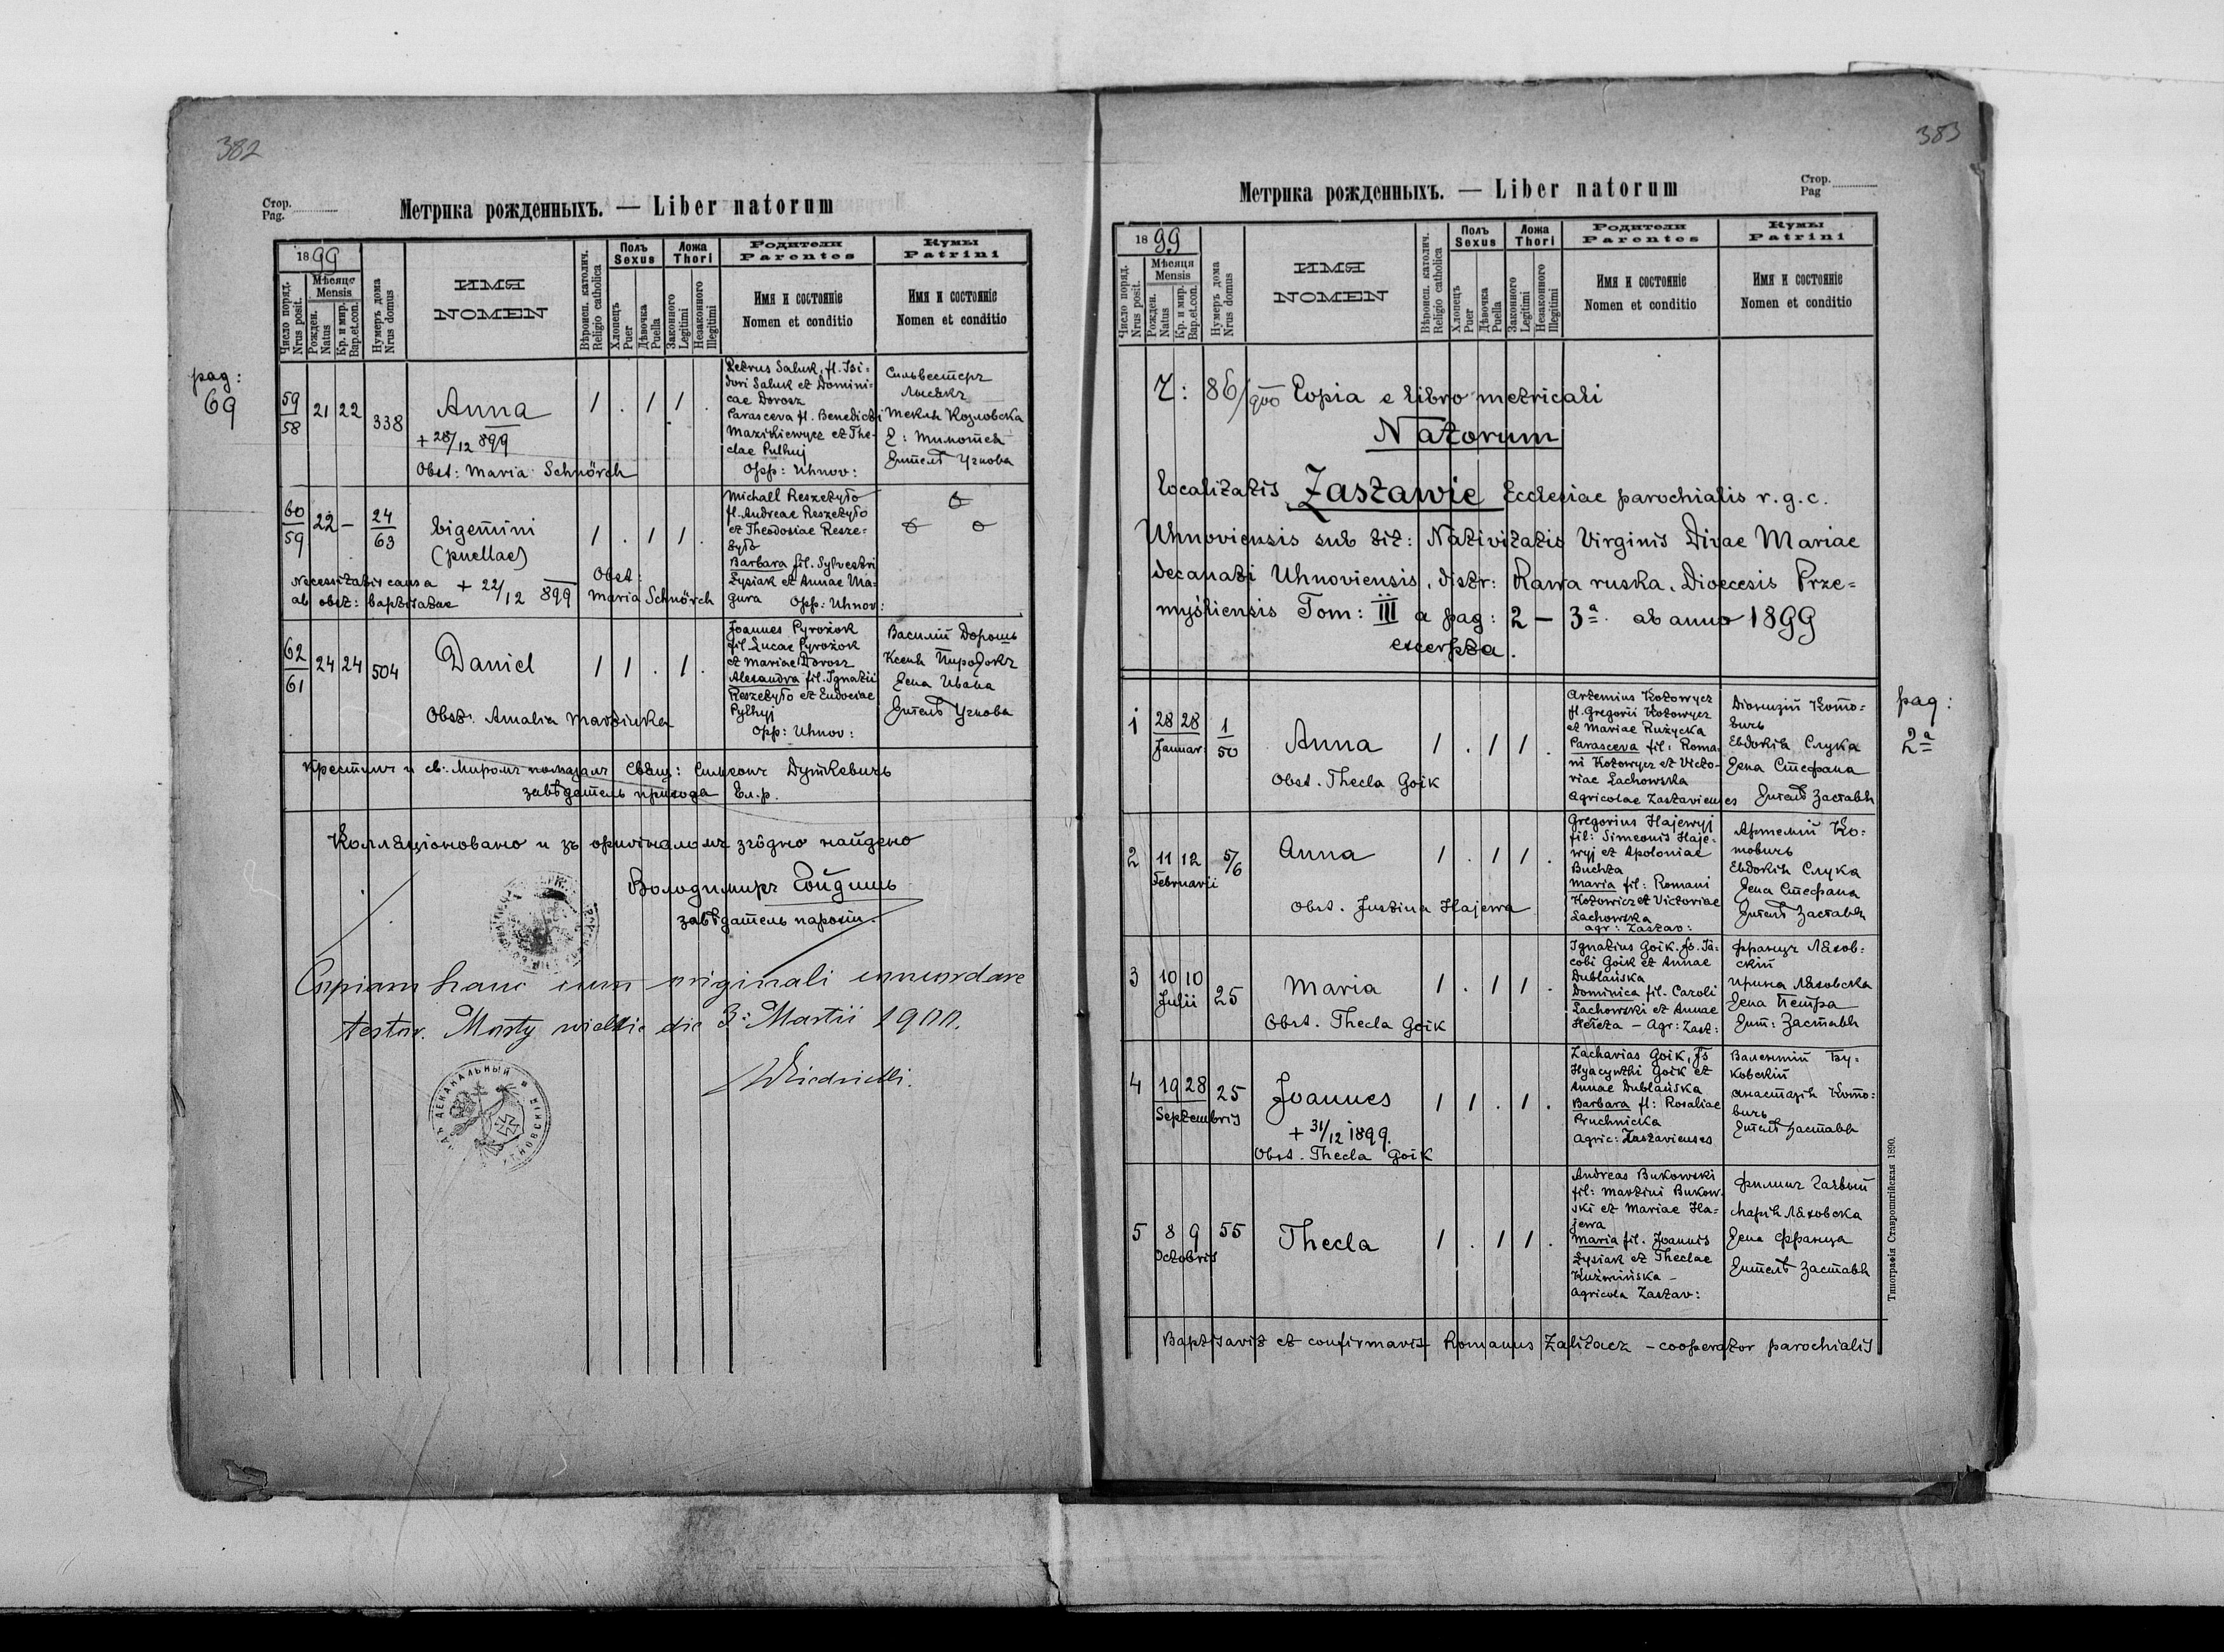 382
Стор.
Pag.
Метрика рожденныхъ. — Liber natorum
1899
Число поряд.
Nrus posit.
Мѣсяце
Mensis
Рожден.
Natus
Кр. и мир.
Bap.et.con.
Нумеръ дома
Nrus domus
ИМЯ
NOMEN
Вѣроисп. католич.
Religio catholica
Полъ
Sexus
Хлопецъ
Puer
Дѣвочка
Puella
Ложа
Thori
Законного
Legitimi
Незаконного
Illegitimi
Родители
Parentes
Имя и состояніе
Nomen et conditio
Кумы
Patrini
Имя и состояніе
Nomen et conditio
pag:
69
59
58
21 22 338
Anna
+ 28/12 899
Obst: Maria Schnörch
1 . 1 1 .
Petrus Saluk, fl. Isi=
dori Saluk et Domini=
cae Dorosz
Parasceva fl. Benedicti
Mazikiewycz et The=
clae Pulhuj
Opp: Uhnov:
Сильвестеръ
Лысякъ
Текля Козловска
Тимотея
Жителѣ Угнова
60
59
22 —
24
63
bigemini
(puellae)
Necessitatis causa
ab obst: baptisatae
+ 22/12 899
Obst:
Maria Schnörch
1 . 1 1 .
Michaël Reszetyło
fl. Andreae Reszetyło
et Theodosiae Resze=
tyło
Barbara fil. Sylvestri
Łysiak et Annae Ma=
gura Opp: Uhnov:
62
61
24 24 504
Daniel
Obst: Amalia Martinka
1 1 . 1 .
Joannes Pyrożok
fil. Lucae Pyrożok
et Mariae Dorosz
Alexandra fil. Ignatii
Reszetyło et Eudociae
Pylhyj
Opp: Uhnov:
Василій Дорошъ
Ксеня Пирожокъ
Жена Ивана
Жителѣ Угнова
Крестилъ и св: Миромъ помазалъ свящ: Симеонъ Дуткевичь
завѣдатель прихода Ел.р.
Колляціоновано и зъ ориґіналомъ згôдно найдено
Володимиръ
завѣдатель парохіи.
Copiam hanc cum originali concordare
testor. Mosty wielkie die 3: Martii 1900.
383
Метрика рожденныхъ. — Liber natorum
Стор.
Pag
1899
Число поряд.
Nrus posit.
Мѣсяця
Mensis
Рожден.
Natus
Кр. и мир.
Bap.et.con.
Нумеръ дома
Nrus domus
ИМЯ
NOMEN
Вѣроисп. католич.
Religio catholica
Полъ
Sexus
Хлопецъ
Puer
Дѣвочка
Puella
Ложа
Thori
Законного
Legitimi
Незаконного
Illegitimi
Родители
Parentes
Имя и состояніе
Nomen et conditio
Кумы
Patrini
Имя и состояніе
Nomen et conditio
86/900 Copia e libro metricali
Natorum
localitatis Zastawie Ecclesiae parochialis r.g.c.
Uhnoviensis sub tit: Nativitatis Virginis Divae Mariae
decanati Uhnoviensis, distr: Rawa ruska, Dioecesis Prze=
myśliensis Tom: III a pag: 2 — 3ª ab anno 1899
excerpta.
pag:
2ª
1
28 28
Januar:
1
50
Anna
Obst. Thecla Goik
1 . 1 1 .
Artemius Kotowycz
fl. Gregorii Kotowycz
et Mariae Rużycka
Parasceva fil: Roma=
ni Kotowycz et Victo=
riae Lachowska
Agricolae Zastavienses
Діонизій Кото=
вичь
Евдокія Слука
Жена Стефана
Жителѣ Заставя
2
11 12
Februarii
5/6
Anna
Obst. Justina Hajewa
1 . 1 1 .
Gregorius Hajewyj
fil: Simeonis Haje=
wyj et Apoloniae
Buchta
Maria fil: Romani
Kotowicz et Victoriae
Lachowska
agr: Zastav:
Артемій Ко=
товичь
Евдокія Слука
Жена Стефана
Жителѣ Заставя
3
10 10
Julii
25
Maria
Obst. Thecla Goik
1 . 1 1 .
Ignatius Goik. fs. Ja=
cobi Goik et Annae
Dublańska
Dominica fil. Caroli
Lachowski et Annae
— Agr: Zast:
Францъ Ляхов=
скій
Ирина Ляховска
Жена Петра
Жит: Заставя
4
19 28
Septembris
25
Joannes
+ 31/12 1899.
Obst. Thecla Goik
1 1 . 1 .
Zacharias Goik, fs
Hyacynthi Goik et
Annae Dublańska
Barbara fl: Rosaliae
Pruchnicka
Agric: Zastavienses
Валентій Бу=
ковскій
Анастазія Кото=
вичь
Жителѣ Заставя
5
8 9
Octobris
55
Thecla
1 . 1 1 .
Andreas Bukowski
fil: Martini Bukow=
ski et Mariae Ha=
jewa
Maria fil. Joannis
Łysiak et Theclae
Kuźmińska —
Agricola Zastav:
Филипъ Гаевый
Марія Ляховска
Жена Франца
Жителѣ Заставя
Baptisavit et confirmavit Romanus Zalitacz — cooperator parochialis
Типографія Ставропигійская 1890.